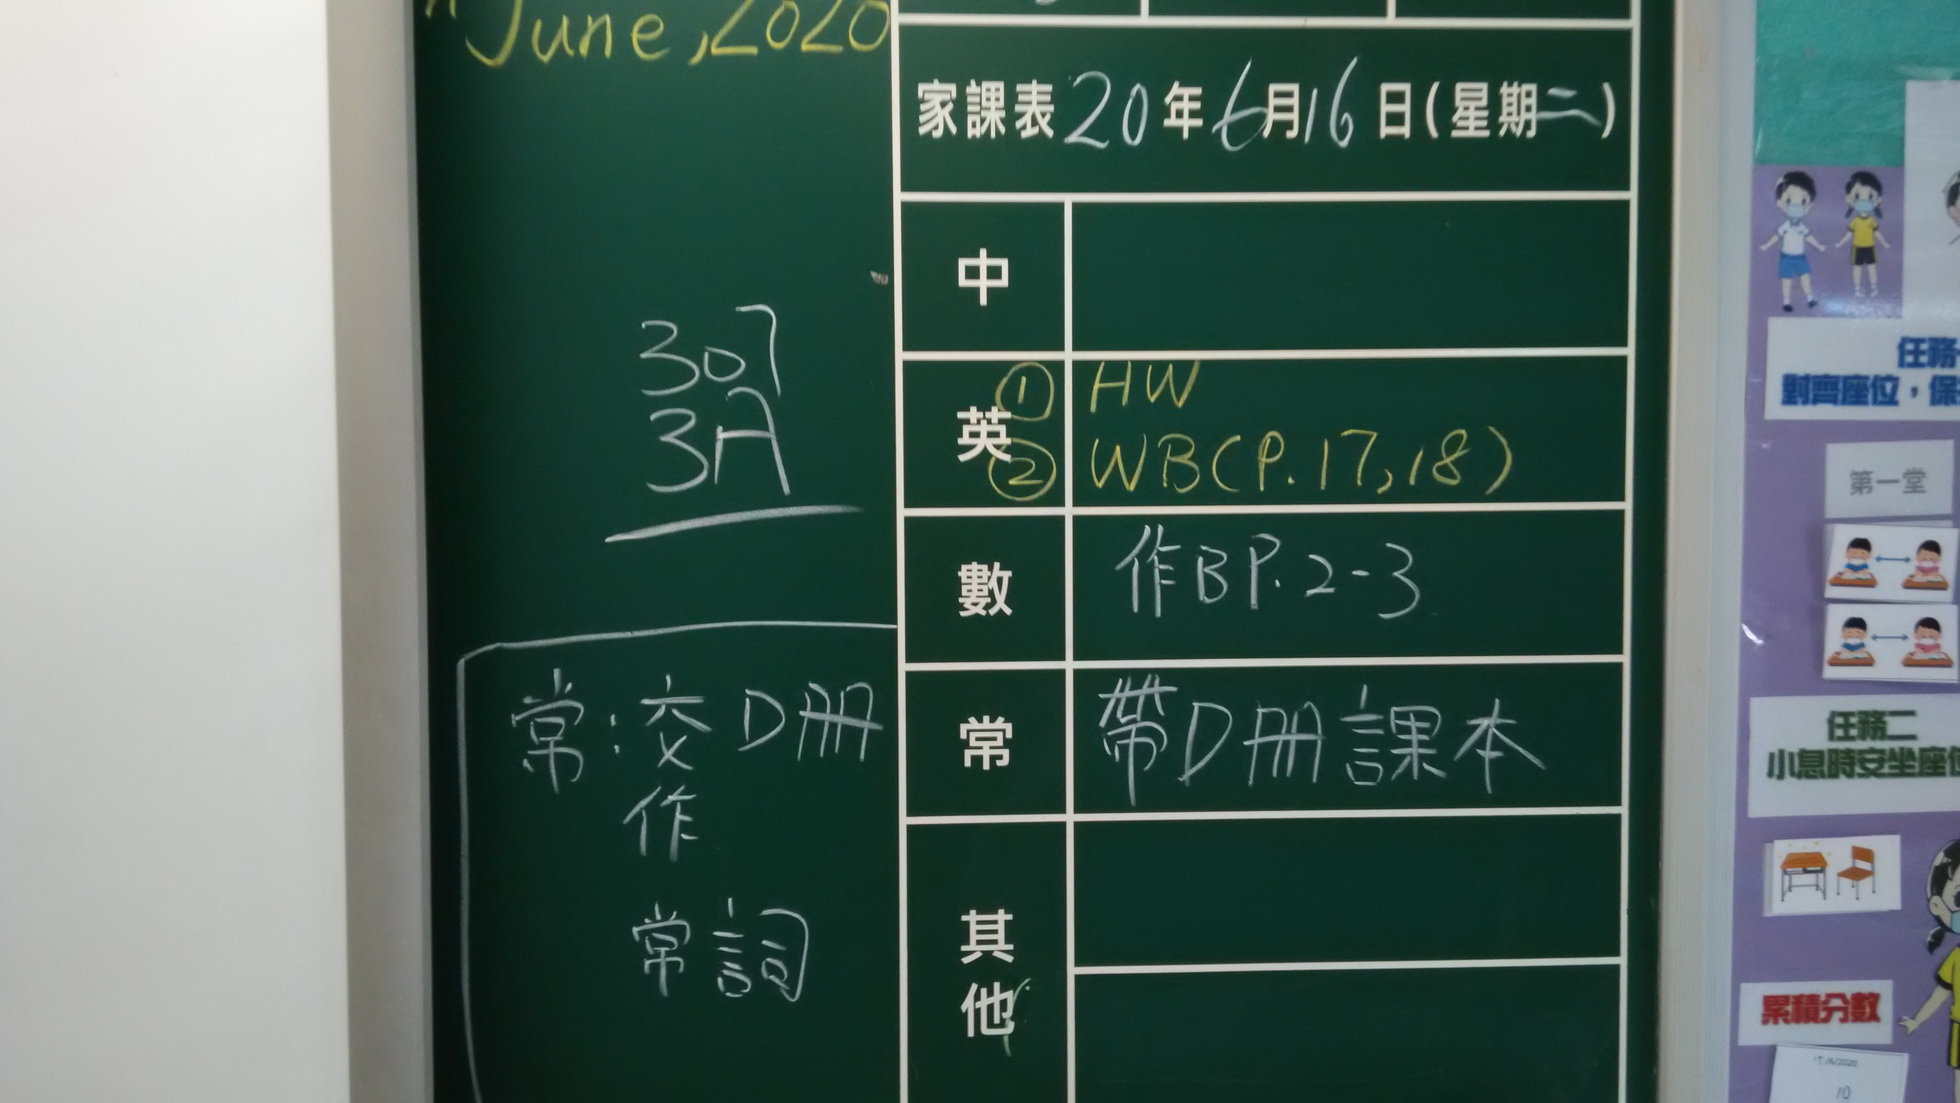 June,2020
家課表20年6月16日(星期二)
307
3A
中
英
① HW
② WB(P.17,18)
數
作BP.2-3
常
帶D冊課本
其他
常:交D冊
作
常詞
任務
對齊座位,保
第一堂
任務二
小息時安坐座位
累積分數
10